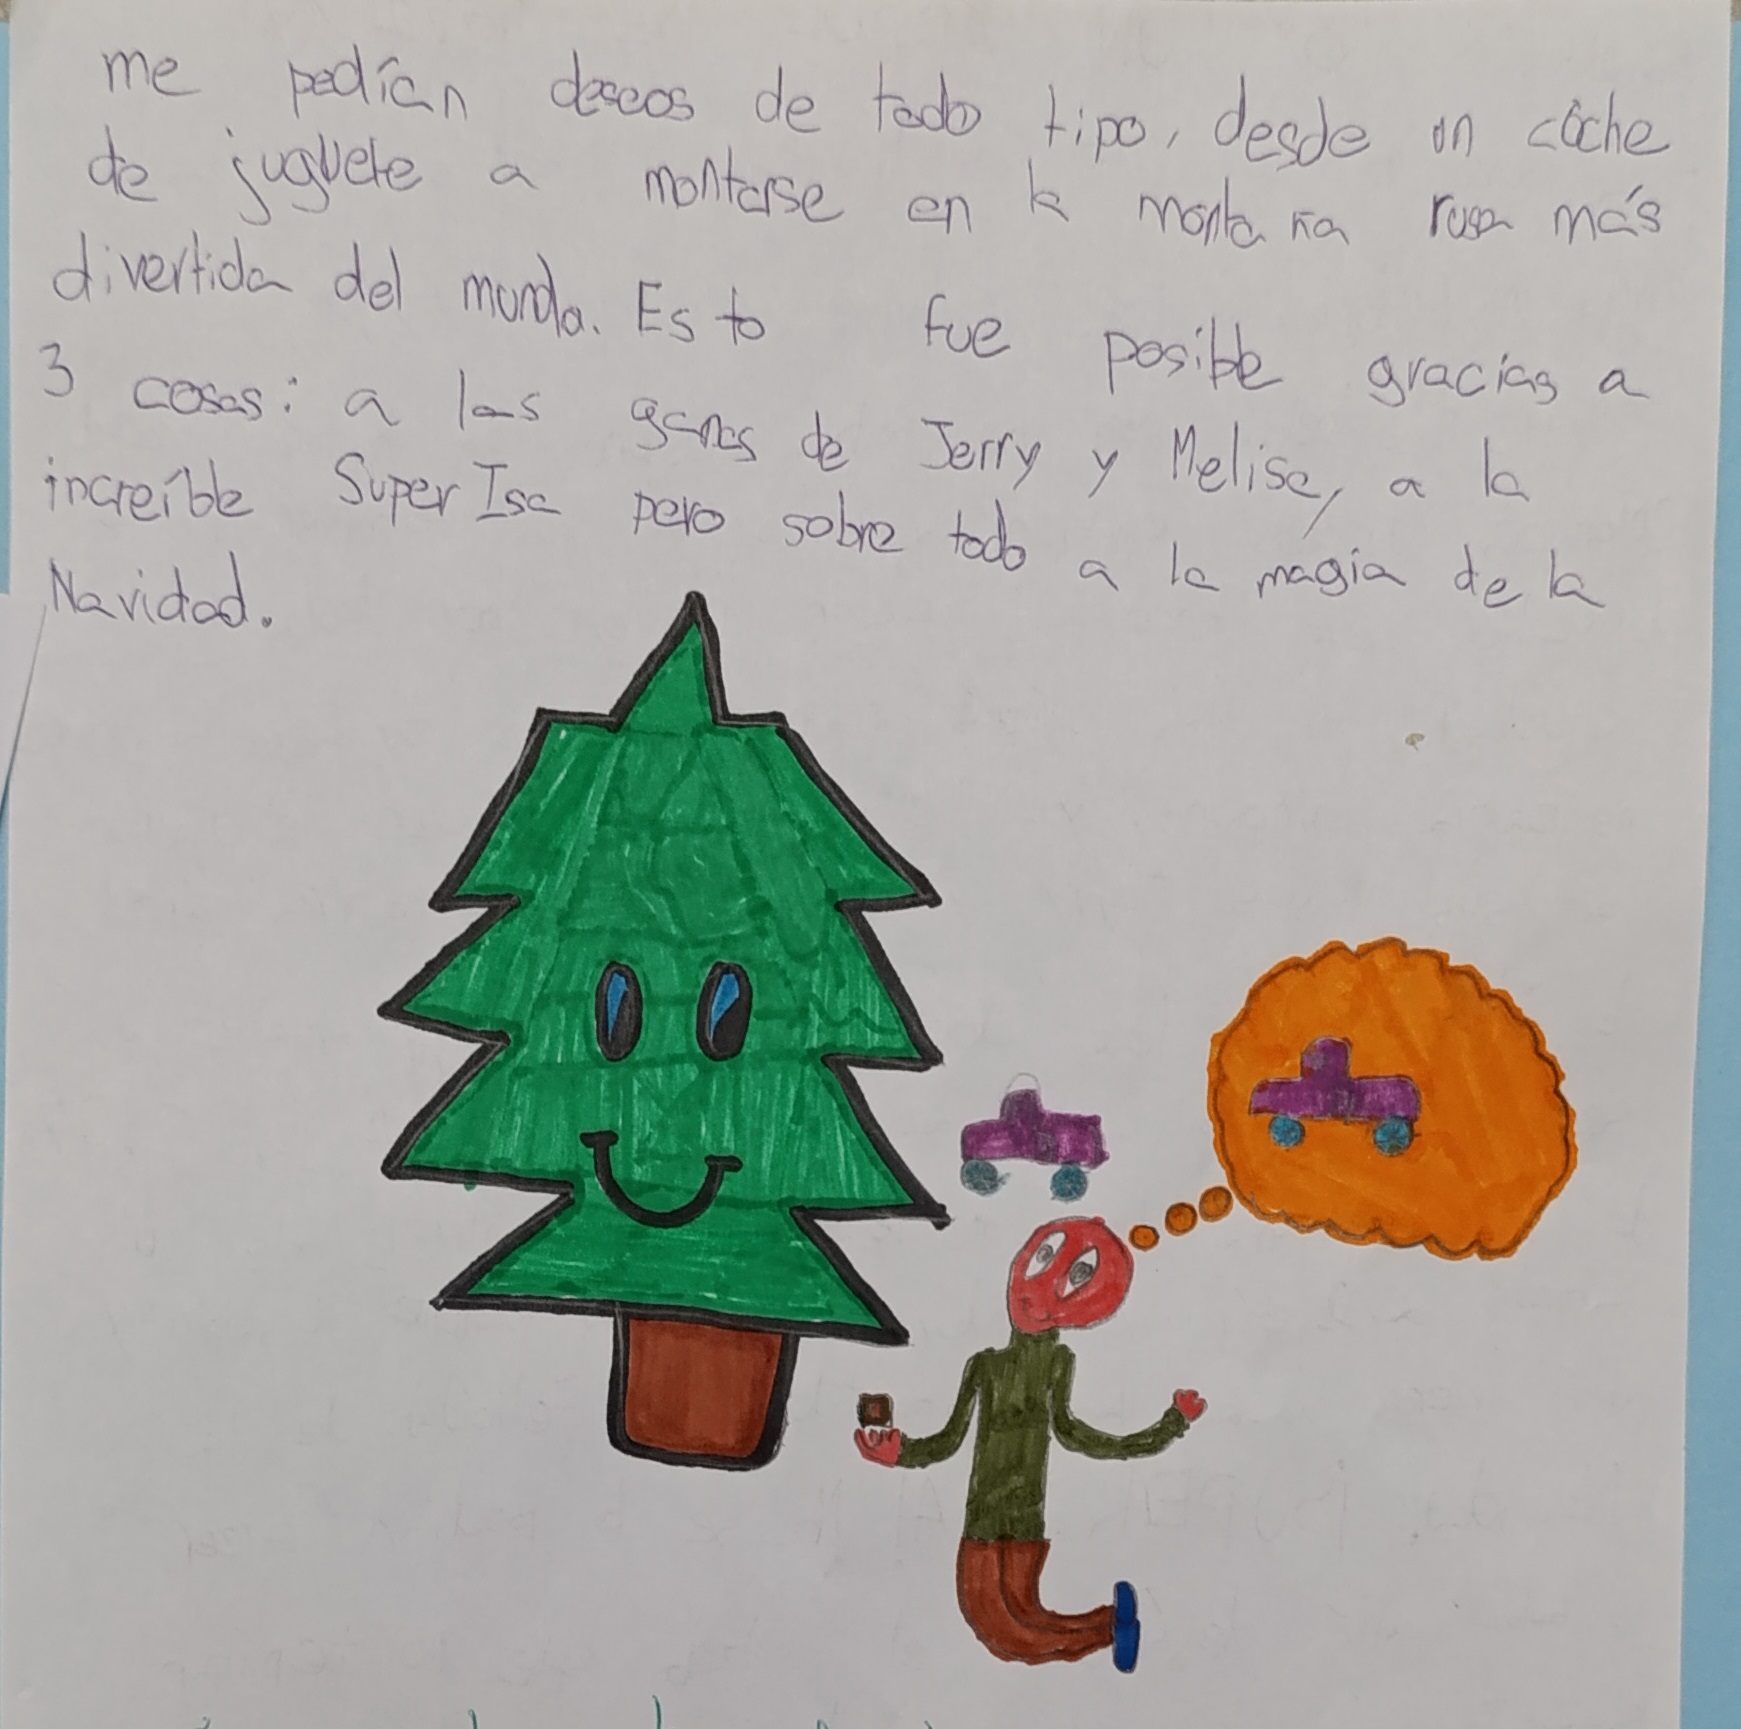 me pedían deseos de todo tipo, desde un coche
de juguete a montarse en la montaña rusa más
divertida del mundo. Esto fue posible gracias a
3 cosas: a las ganas de Jerry y Melisa, a la
increíble Super Isa pero sobre todo a la magia de la
Navidad.